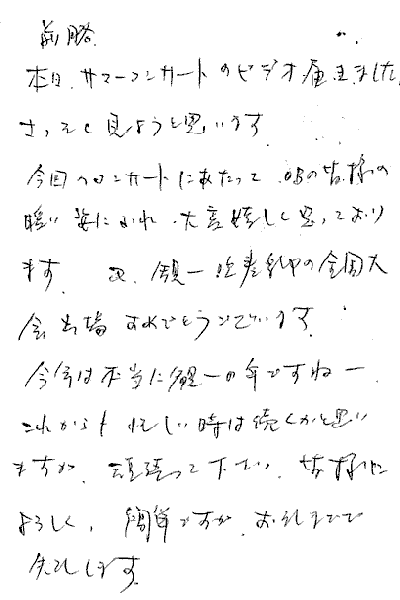 前略
本日、サマーコンサートのビデオ届きました
さっそく見ようと思います
今回のコンサートにあたって、OBの皆様の
暖い姿にふれ、大変嬉しく思っており
ます。又、銀一 の全国大
会出場おめでとうございます。
今年は本当に銀一の年ですねー
これからも忙しい時は続くかと思い
ますが、頑張って下さい。皆様に
よろしく、簡単ですが、お礼まで
失礼します。